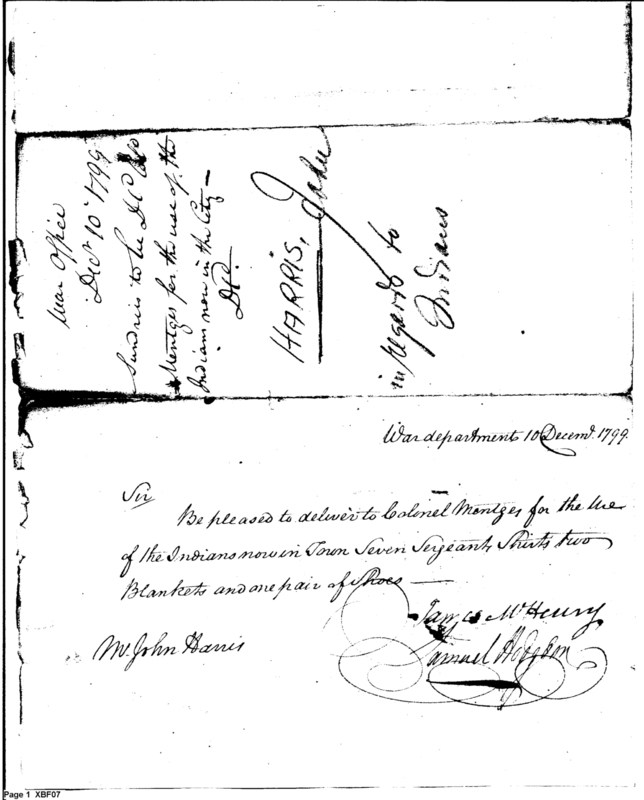 War Office
Decr 10th 1799
Sundries to be Dd Colo
Mentges for the use of the
Indians now in the City —
Dd.
HARRIS, John
in regards to
Indians
War department 10 Decemr. 1799.
Sir
Be pleased to deliver to Colonel Mentges for the Use
of the Indians now in Town Seven Sergeants Shirts two
Blankets and one pair of Shoes —
James McHenry
Samuel Hodgdon
Mr. John Harris
Page 1 XBF07